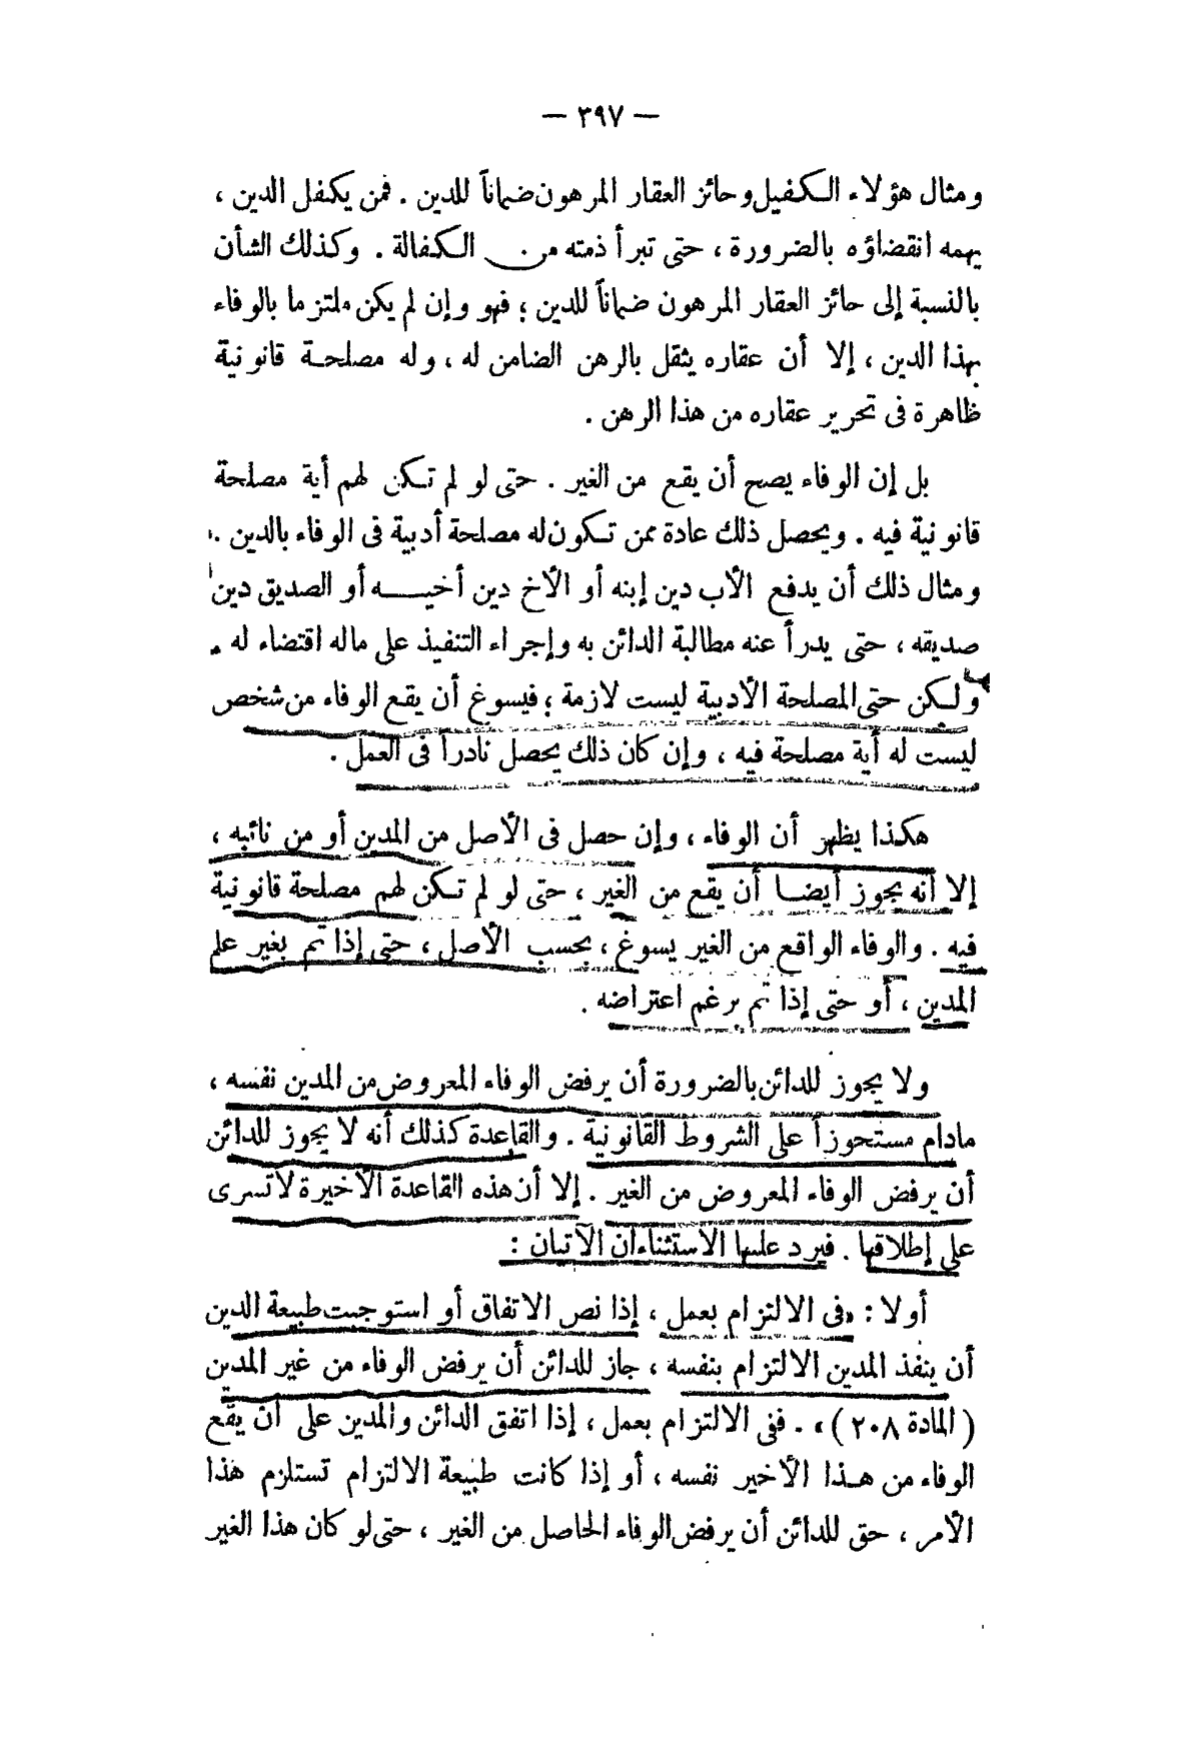 — ٣٩٧ —
ومثال هؤلاء الكفيل وحائز العقار المرهون ضماناً للدين . فمن يكفل الدين ،
يهمه انقضاؤه بالضرورة ، حتى تبرأ ذمته من الكفالة . وكذلك الشأن
بالنسبة إلى حائز العقار المرهون ضماناً للدين ؛ فهو وإن لم يكن ملتزما بالوفاء
بهذا الدين ، إلا أن عقاره يثقل بالرهن الضامن له ، وله مصلحة قانونية
ظاهرة فى تحرير عقاره من هذا الرهن .
بل إن الوفاء يصح أن يقع من الغير . حتى لو لم تكن لهم أية مصلحة
قانونية فيه . ويحصل ذلك عادة ممن تكون له مصلحة أدبية فى الوفاء بالدين .
ومثال ذلك أن يدفع الأب دين إبنه أو الأخ دين أخيه أو الصديق دين
صديقه ، حتى يدرأ عنه مطالبة الدائن به وإجراء التنفيذ على ماله اقتضاء له .
ولكن حتى المصلحة الأدبية ليست لازمة ؛ فيسوغ أن يقع الوفاء من شخص
ليست له أية مصلحة فيه ، وإن كان ذلك يحصل نادراً فى العمل .
هكذا يظهر أن الوفاء ، وإن حصل فى الأصل من المدين أو من نائبه ،
إلا أنه يجوز أيضا أن يقع من الغير ، حتى لو لم تكن لهم مصلحة قانونية
فيه . والوفاء الواقع من الغير يسوغ ، بحسب الأصل ، حتى إذا تم بغير علم
المدين ، أو حتى إذا تم برغم اعتراضه .
ولا يجوز للدائن بالضرورة أن يرفض الوفاء المعروض من المدين نفسه ،
مادام مستحوزاً على الشروط القانونية . والقاعدة كذلك أنه لا يجوز للدائن
أن يرفض الوفاء المعروض من الغير . إلا أن هذه القاعدة الأخيرة لا تسرى
على إطلاقها . فيرد عليها الاستثناءان الآتيان :
أولا : «فى الالتزام بعمل ، إذا نص الاتفاق أو استوجبت طبيعة الدين
أن ينفذ المدين الالتزام بنفسه ، جاز للدائن أن يرفض الوفاء من غير المدين
( المادة ٢٠٨ )» . ففى الالتزام بعمل ، إذا اتفق الدائن والمدين على أن يقع
الوفاء من هذا الأخير نفسه ، أو إذا كانت طبيعة الالتزام تستلزم هذا
الأمر ، حق للدائن أن يرفض الوفاء الحاصل من الغير ، حتى لو كان هذا الغير